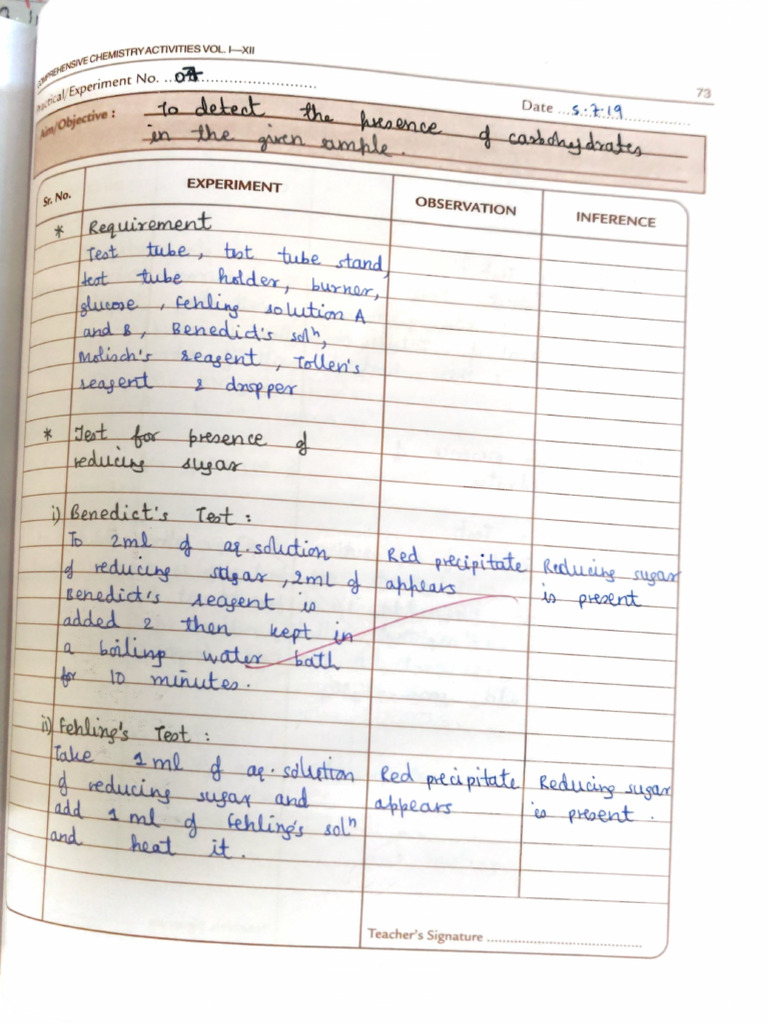 COMPREHENSIVE CHEMISTRY ACTIVITIES VOL. I—XII
73
Practical/Experiment No. ...07
Date ...5.7.19
Aim/Objective : To detect the presence of carbohydrates
in the given sample.
Sr. No. EXPERIMENT OBSERVATION INFERENCE
* Requirement
Test tube, test tube stand,
test tube holder, burner,
glucose, Fehling solution A
and B, Benedict's solⁿ,
Molisch's reagent, Tollen's
reagent & dropper
* Test for presence of
reducing sugar
i) Benedict's Test :
To 2ml of aq. solution Red precipitate Reducing sugar
of reducing sugar, 2ml of appears is present
Benedict's reagent is
added & then kept in
a boiling water bath
for 10 minutes.
ii) Fehling's Test :
Take 1ml of aq. solution Red precipitate Reducing sugar
of reducing sugar and appears is present.
add 1 ml of Fehling's solⁿ
and heat it.
Teacher's Signature